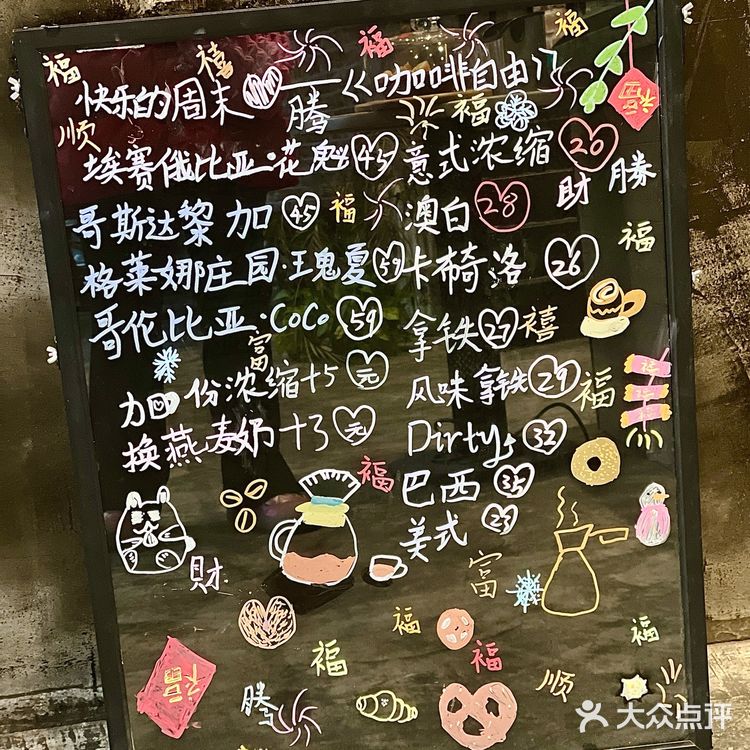 福 禧 福 福
快乐的周末 腾 《咖啡自由》
顺 福 福
埃塞俄比亚·花魁 45 意式浓缩 20
財 腾
哥斯达黎加 45 福 澳白 28
福
格莱娜庄园·瑰夏 59 卡布奇洛 26
哥伦比亚·COCO 59 拿铁 27 禧
富
加份浓缩+5元 风味拿铁 29 福
换燕麦奶+3元 Dirty 32
福 巴西 35
美式 23
財 富
福 福
福 福 福
福 腾 顺
大众点评